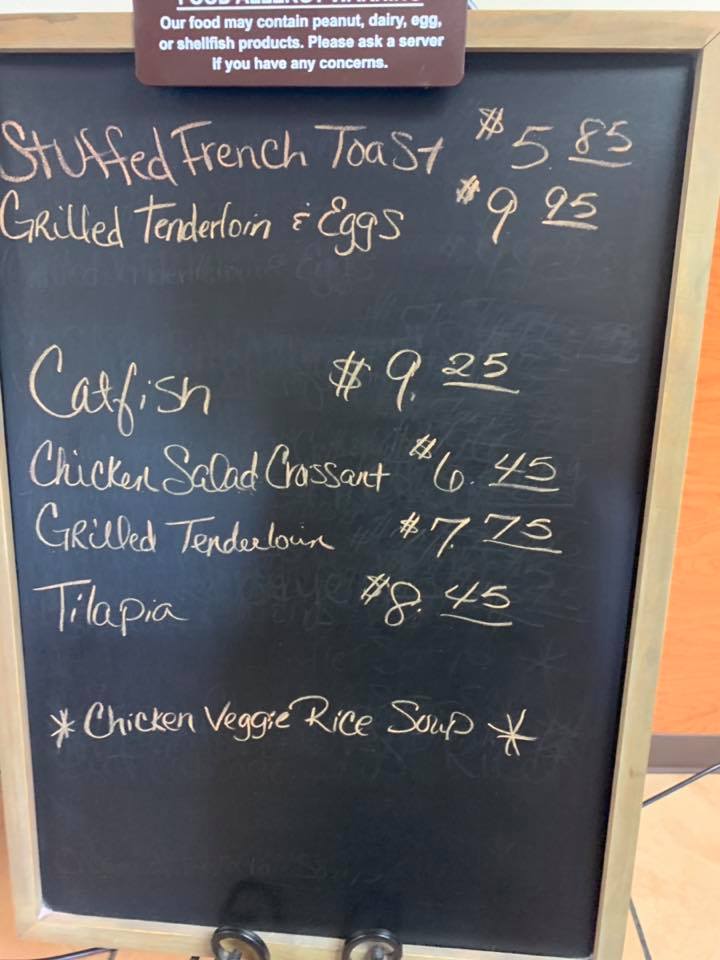 FOOD ALLERGY WARNING
Our food may contain peanut, dairy, egg,
or shellfish products. Please ask a server
if you have any concerns.
Stuffed French Toast $5.85
Grilled Tenderloin & Eggs $9 95
Catfish $9.25
Chicken Salad Crossant $6.45
Grilled Tenderloin $7.75
Tilapia $8.45
* Chicken Veggie Rice Soup *